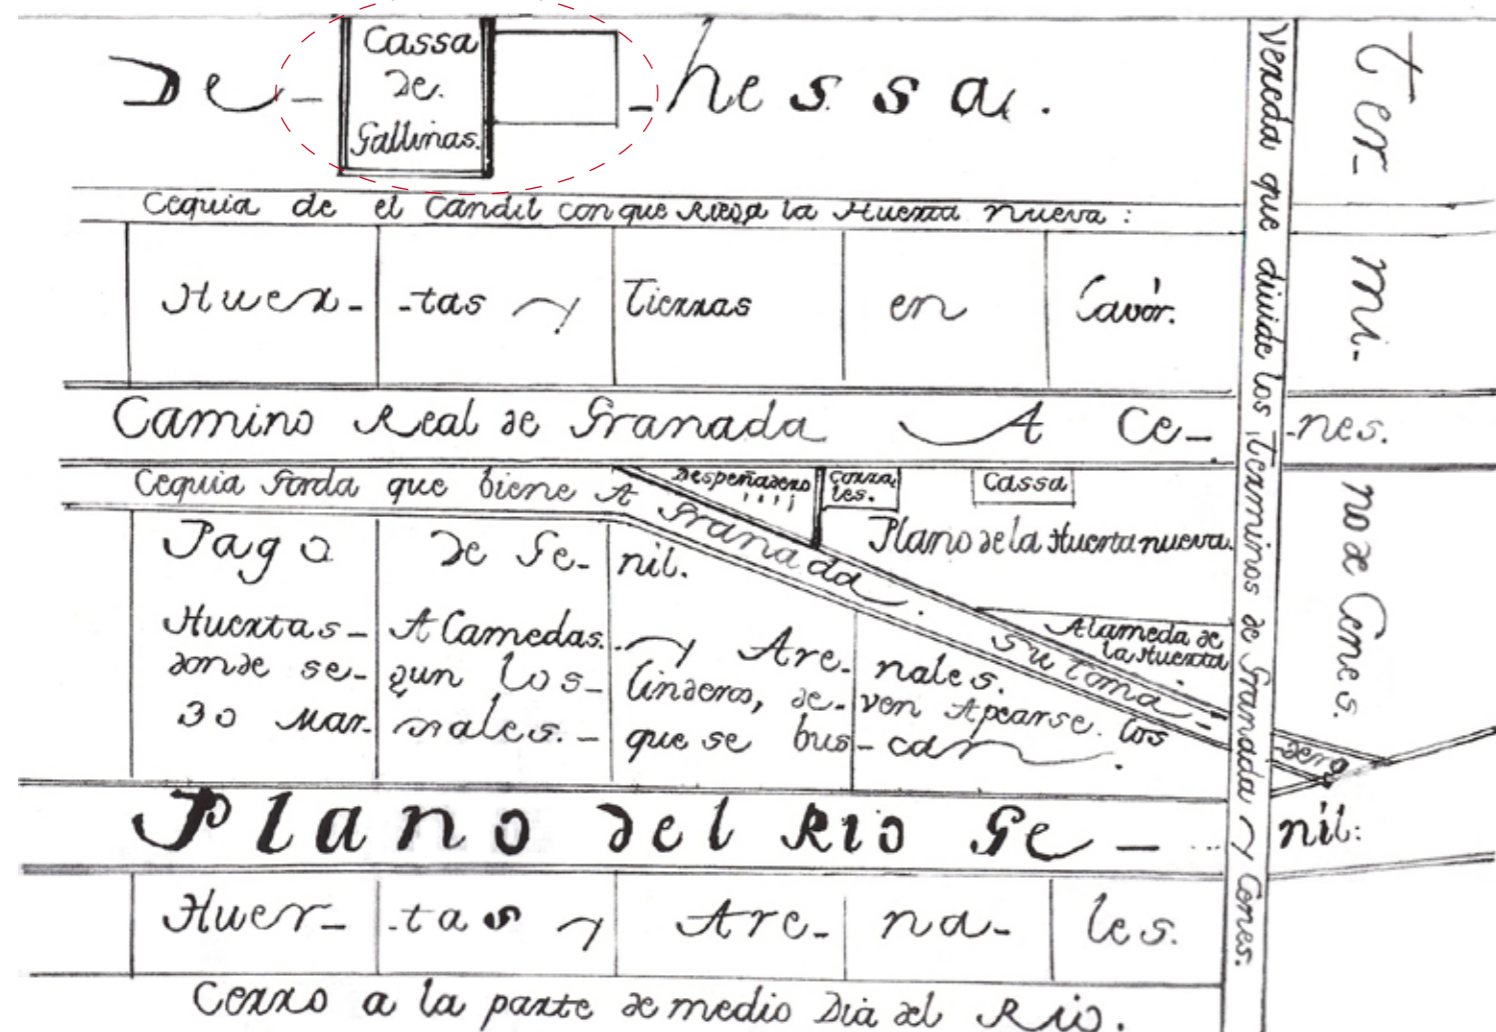 Cassa
de.
Gallinas.
De - - hessa.
Cequia de el Candil con que Riega la Huerta nueva:
Huer- -tas y tierras en lavor.
Camino Real de Granada A Ce- -nes.
Cequia Gorda que biene A Granada. Su toma-dero
Despeñadero
corra
les.
Cassa
Plano de la Huerta nueva.
Alameda de
la Huerta
Pago de Ge- nil.
Huertas- Alamedas. y Are- nales.
donde se- gun los- linderos, de- ven Apearse. los
30 Mar- rales.- que se bus- can.
Plano del Rio Ge- nil:
Huer- -tas y Are- na- les.
Cerro a la parte de medio Dia del Rio.
Vereda que divide los Terminos de Granada y Cenes.
Ter- mi- no de Cenes.